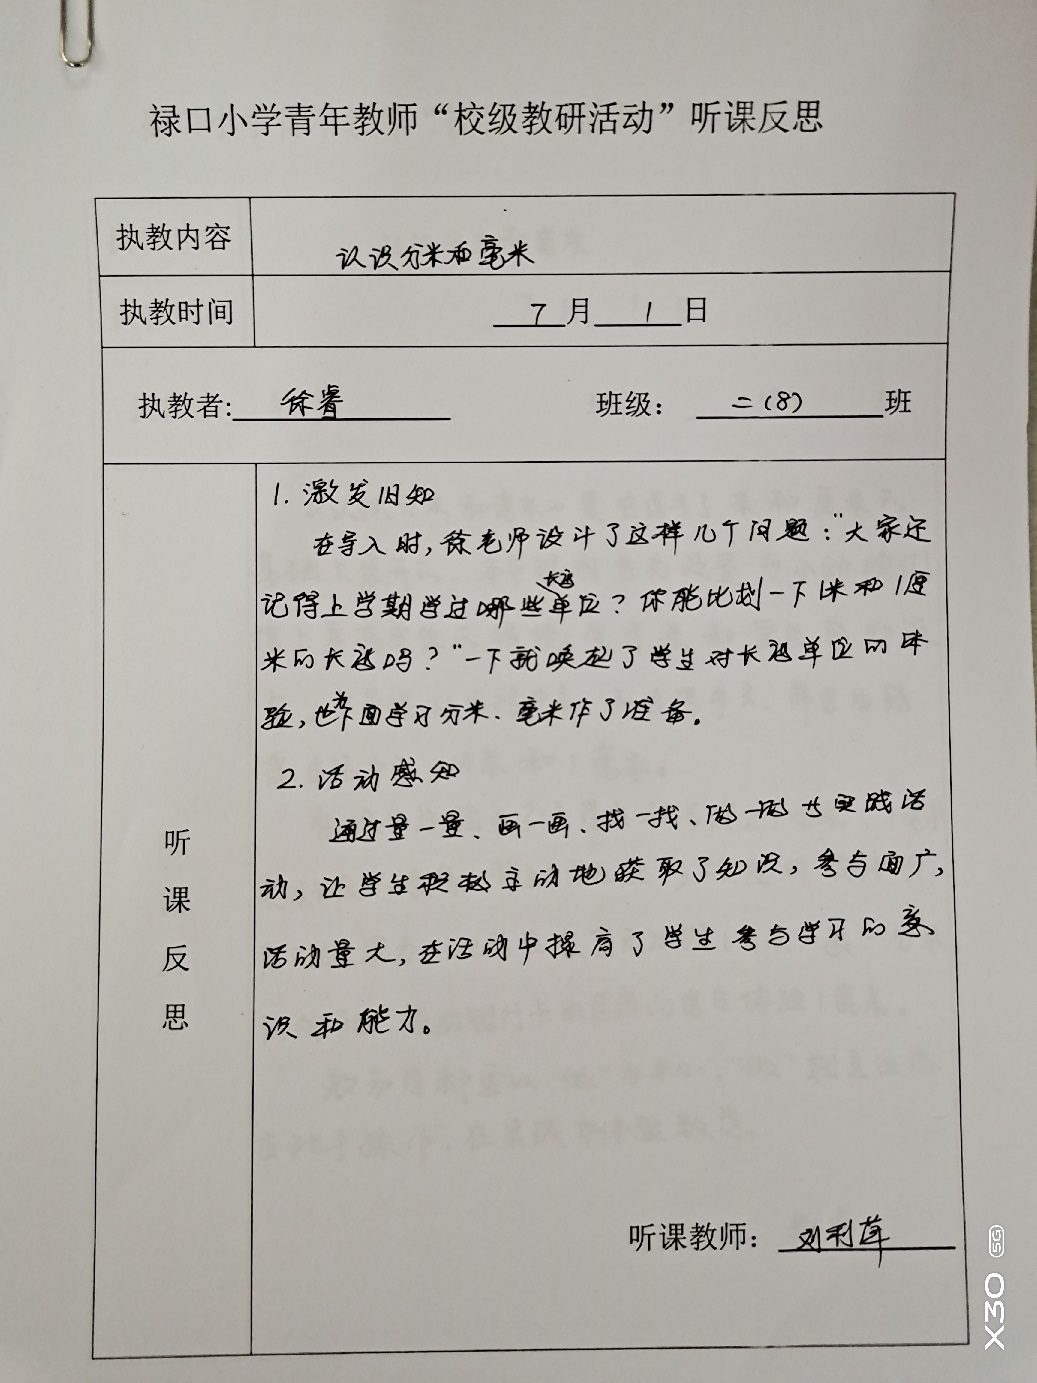 禄口小学青年教师“校级教研活动”听课反思
执教内容
认识分米和毫米
执教时间
7月1日
执教者:徐睿
班级：二(8)班
听课反思
1. 激发旧知
在导入时,徐老师设计了这样几个问题:“大家还
记得上学期学过哪些长度单位？你能比划一下1米和1厘
米的长度吗？”一下就唤起了学生对长度单位的体
验,也为下面学习分米、毫米作了准备。
2. 活动感知
通过量一量、画一画、找一找、做一做等实践活
动,让学生积极主动地获取了知识,参与面广,
活动量大,在活动中提高了学生参与学习的意
识和能力。
听课教师：刘利萍
X30 5G